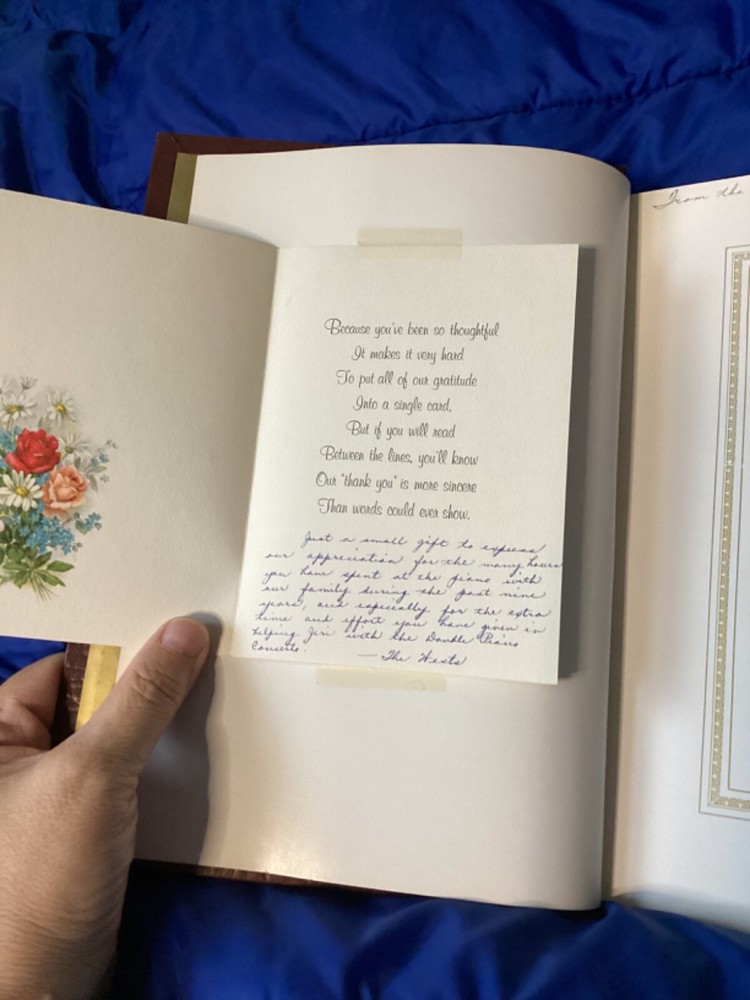 Because you've been so thoughtful
It makes it very hard
To put all of our gratitude
Into a single card,
But if you will read
Between the lines, you'll know
Our "thank you" is more sincere
Than words could ever show.
Just a small gift to express
our appreciation for the many hours
you have spent at the piano with
our family during the past nine
years, and especially for the extra
time and effort you have given in
helping Jiri with the Double Piano
Concerto.
— The Wests
From the